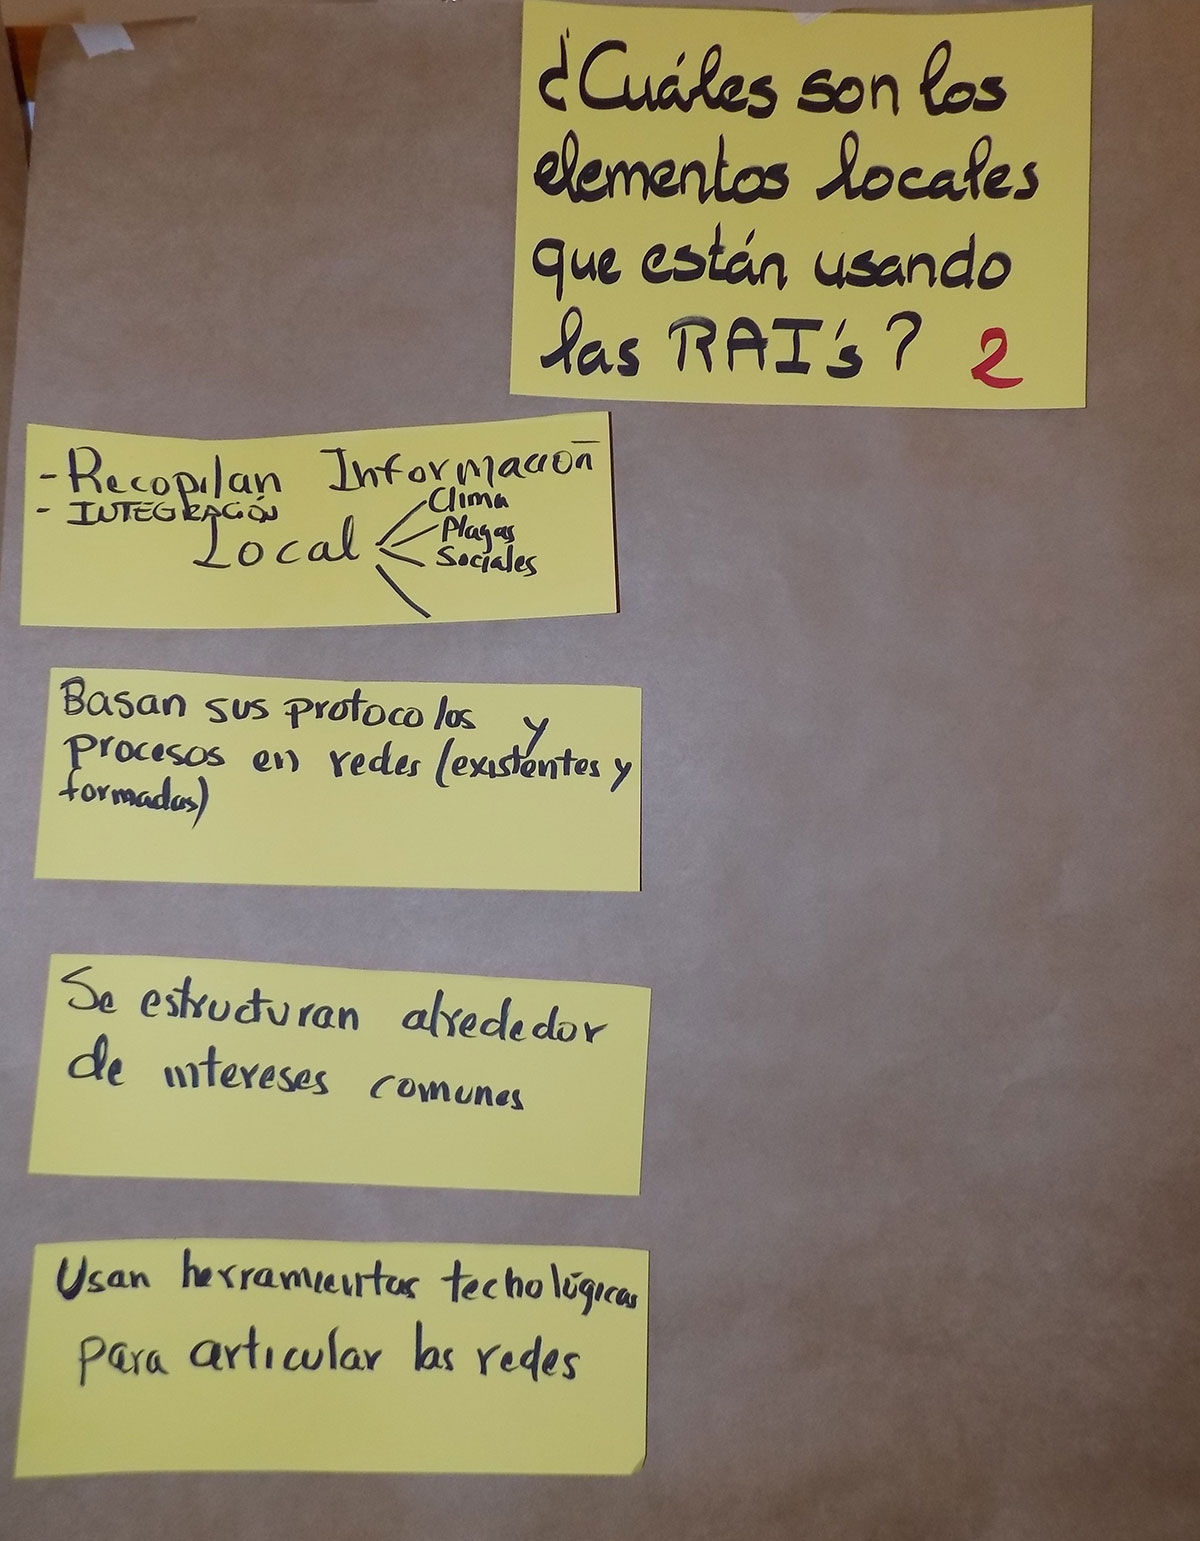 ¿Cuáles son los
elementos locales
que están usando
las RAI's? 2
- Recopilan Información
- INTEGRACIÓN
Local
Clima
Plagas
Sociales
Basan sus protocolos y
procesos en redes (existentes y
formadas)
Se estructuran alrededor
de intereses comunes
Usan herramientas tecnológicas
para articular las redes